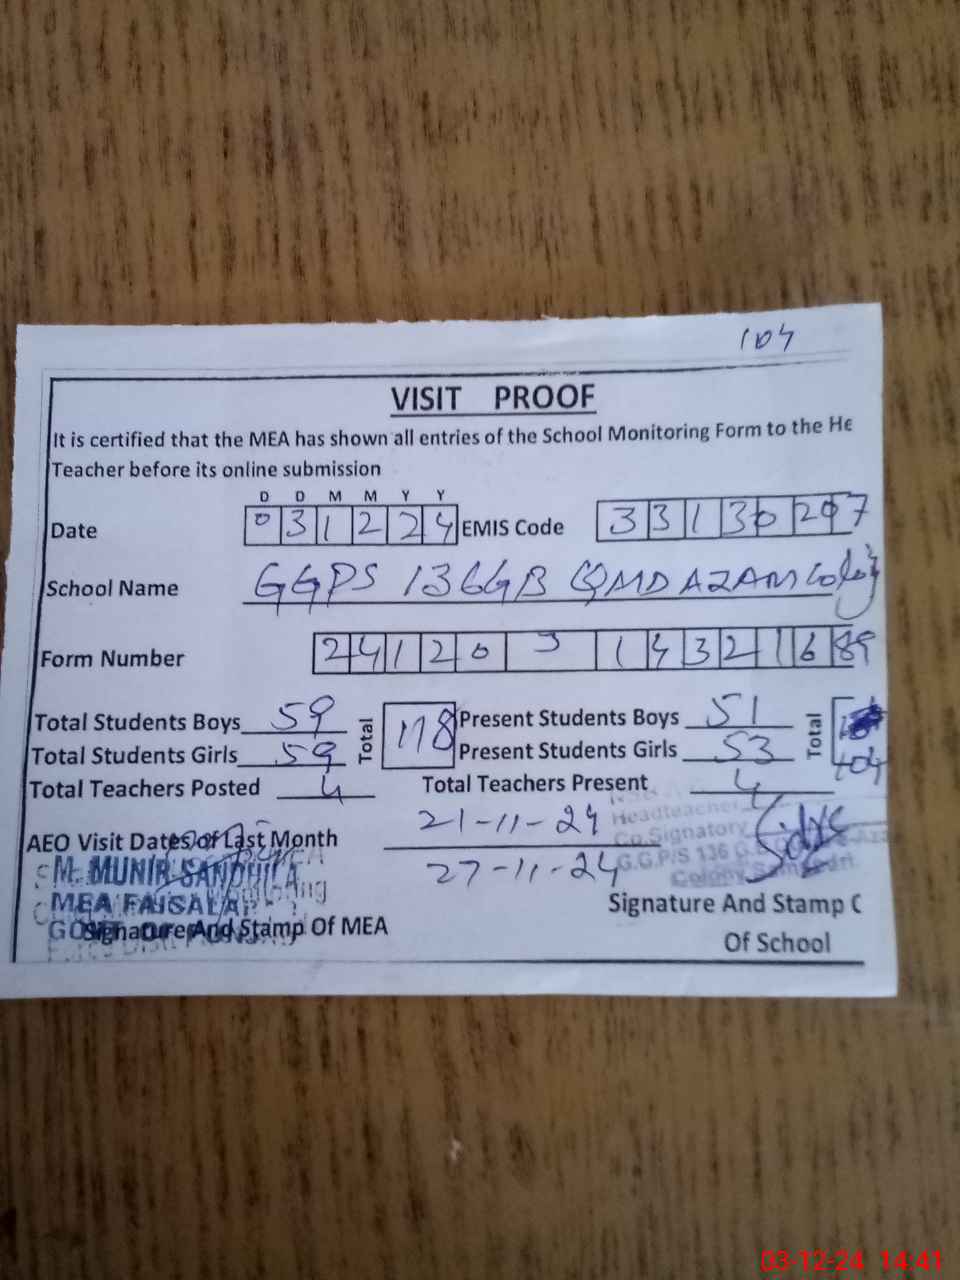 104
VISIT PROOF
It is certified that the MEA has shown all entries of the School Monitoring Form to the He
Teacher before its online submission
D D M M Y Y
Date 0 3 1 2 2 4 EMIS Code 3 3 1 3 0 2 0 7
School Name GGPS 136GB QMD AZAM Colony
Form Number 2 4 1 2 0 3 1 4 3 2 1 6 89
Total Students Boys 59 Total 118 Present Students Boys 51 Total
Total Students Girls 59 Present Students Girls 53 104
Total Teachers Posted 4 Total Teachers Present 4
21-11-24 Headteacher
AEO Visit Dates of Last Month Co.Signatory
M. MUNIR SANDHILA 27-11-24 G.G.P/S 136 G.B
Colony
MEA FAISALAB
Signature And Stamp Of MEA Signature And Stamp O
Of School
03-12-24 14:41